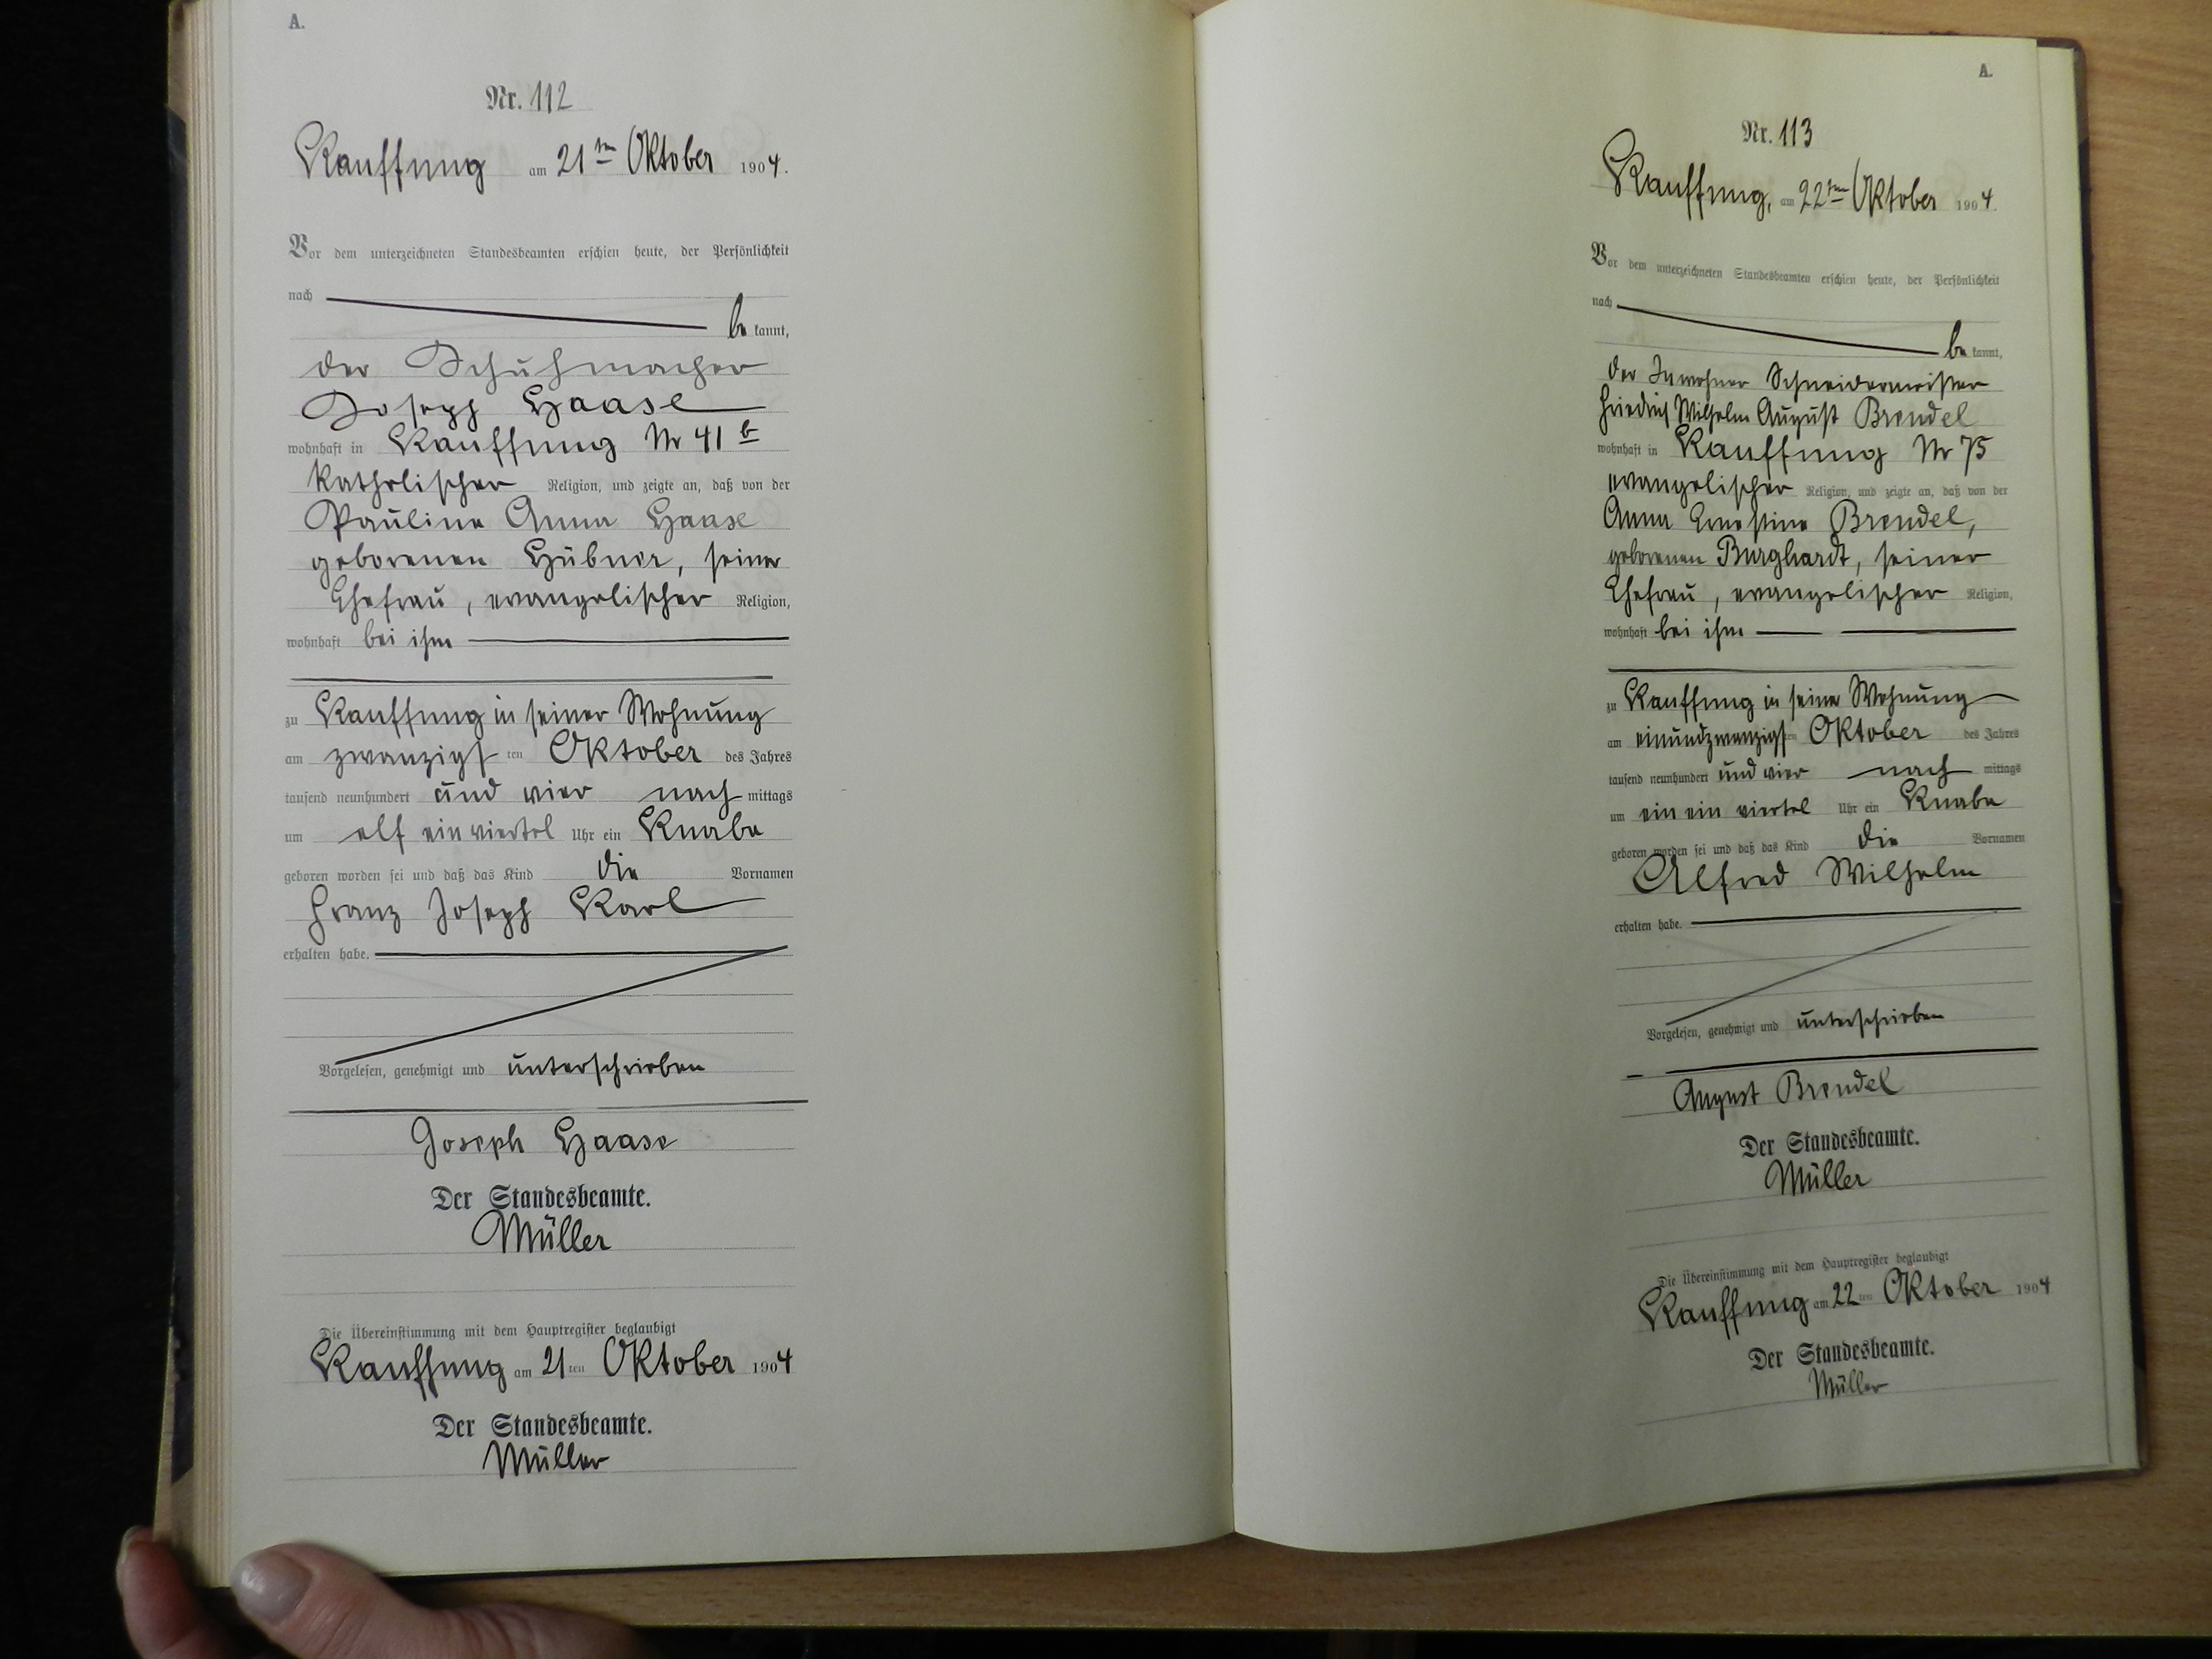 A.
Nr. 112
Kauffung am 21ten Oktober 1904.
Vor dem unterzeichneten Standesbeamten erschien heute, der Persönlichkeit
nach be kannt,
der Schuhmacher
Joseph Haase
wohnhaft in Kauffung Nr 41 b
katholischer Religion, und zeigte an, daß von der
Pauline Anna Haase
geborenen Hübner, seiner
Ehefrau, evangelischer Religion,
wohnhaft bei ihm
zu Kauffung in seiner Wohnung
am zwanzigsten Oktober des Jahres
tausend neunhundert und vier nach mittags
um elf ein viertel Uhr ein Knabe
geboren worden sei und daß das Kind die Vornamen
Franz Joseph Karl
erhalten habe.
Vorgelesen, genehmigt und unterschrieben
Joseph Haase
Der Standesbeamte.
Müller
Die Übereinstimmung mit dem Hauptregister beglaubigt
Kauffung am 21ten Oktober 1904
Der Standesbeamte.
Müller
A.
Nr. 113
Kauffung, am 22ten Oktober 1904.
Vor dem unterzeichneten Standesbeamten erschien heute, der Persönlichkeit
nach be kannt,
der Inwohner Schneidermeister
Friedrich Wilhelm August Brendel
wohnhaft in Kauffung Nr 75
evangelischer Religion, und zeigte an, daß von der
Anna Ernestine Brendel,
geborenen Burghardt, seiner
Ehefrau, evangelischer Religion,
wohnhaft bei ihm
zu Kauffung in seiner Wohnung
am einundzwanzigsten Oktober des Jahres
tausend neunhundert und vier nach mittags
um ein ein viertel Uhr ein Knabe
geboren worden sei und daß das Kind die Vornamen
Alfred Wilhelm
erhalten habe.
Vorgelesen, genehmigt und unterschrieben
August Brendel
Der Standesbeamte.
Müller
Die Übereinstimmung mit dem Hauptregister beglaubigt
Kauffung am 22ten Oktober 1904
Der Standesbeamte.
Müller